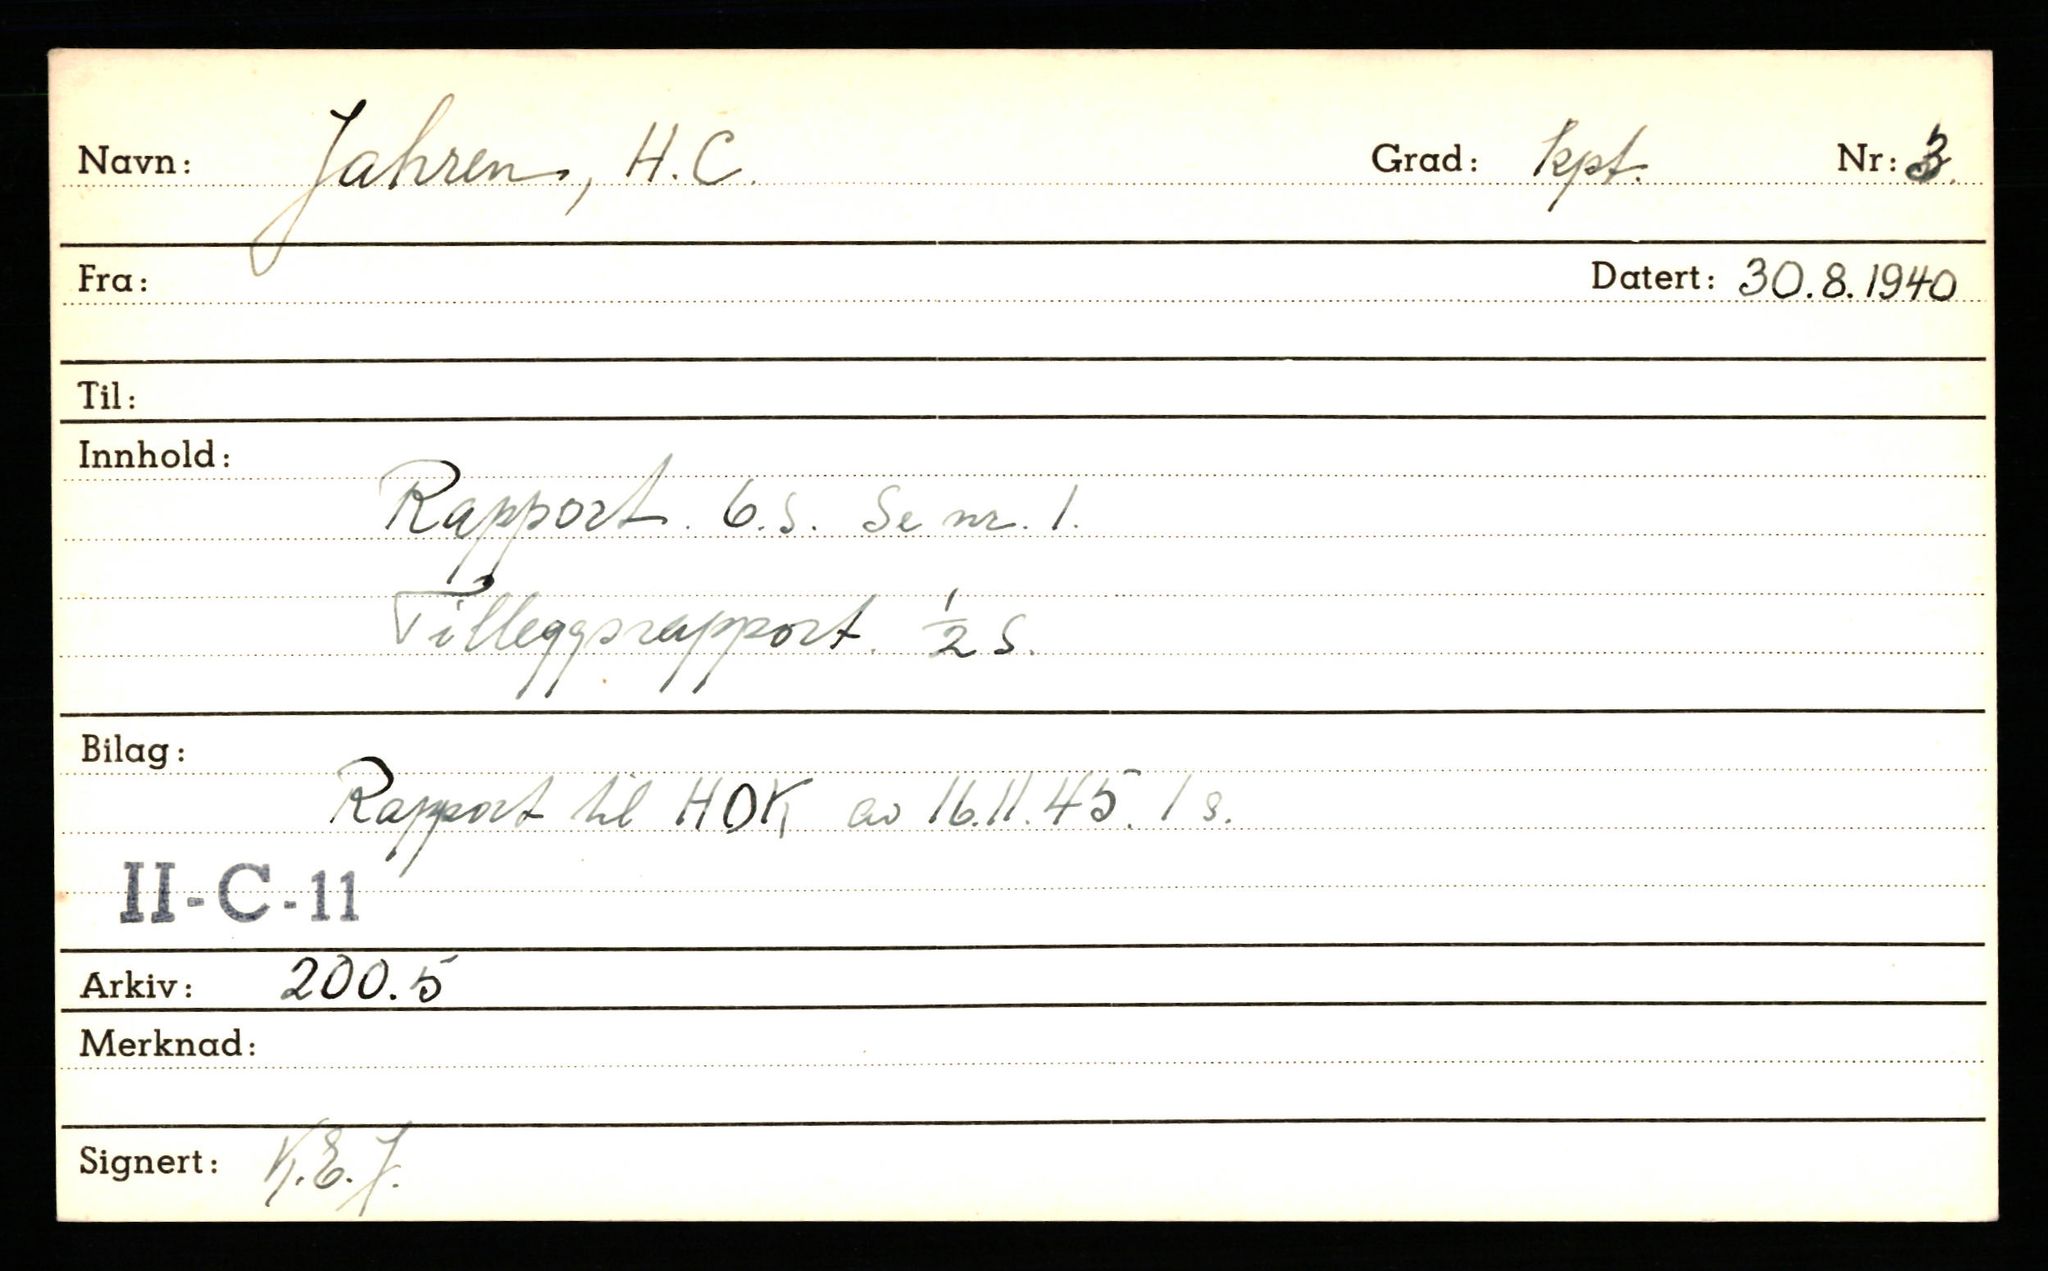 Navn: Jahren, H.C. Grad: kpt. Nr: 3.
Fra: Datert: 30.8.1940
Til:
Innhold:
Rapport. 6.s. Se nr. 1.
Tilleggsrapport. 1/2 s.
Bilag:
Rapport til HOK av 16.11.45. 1 s.
II-C-11
Arkiv: 200.5
Merknad:
Signert: K.E.J.